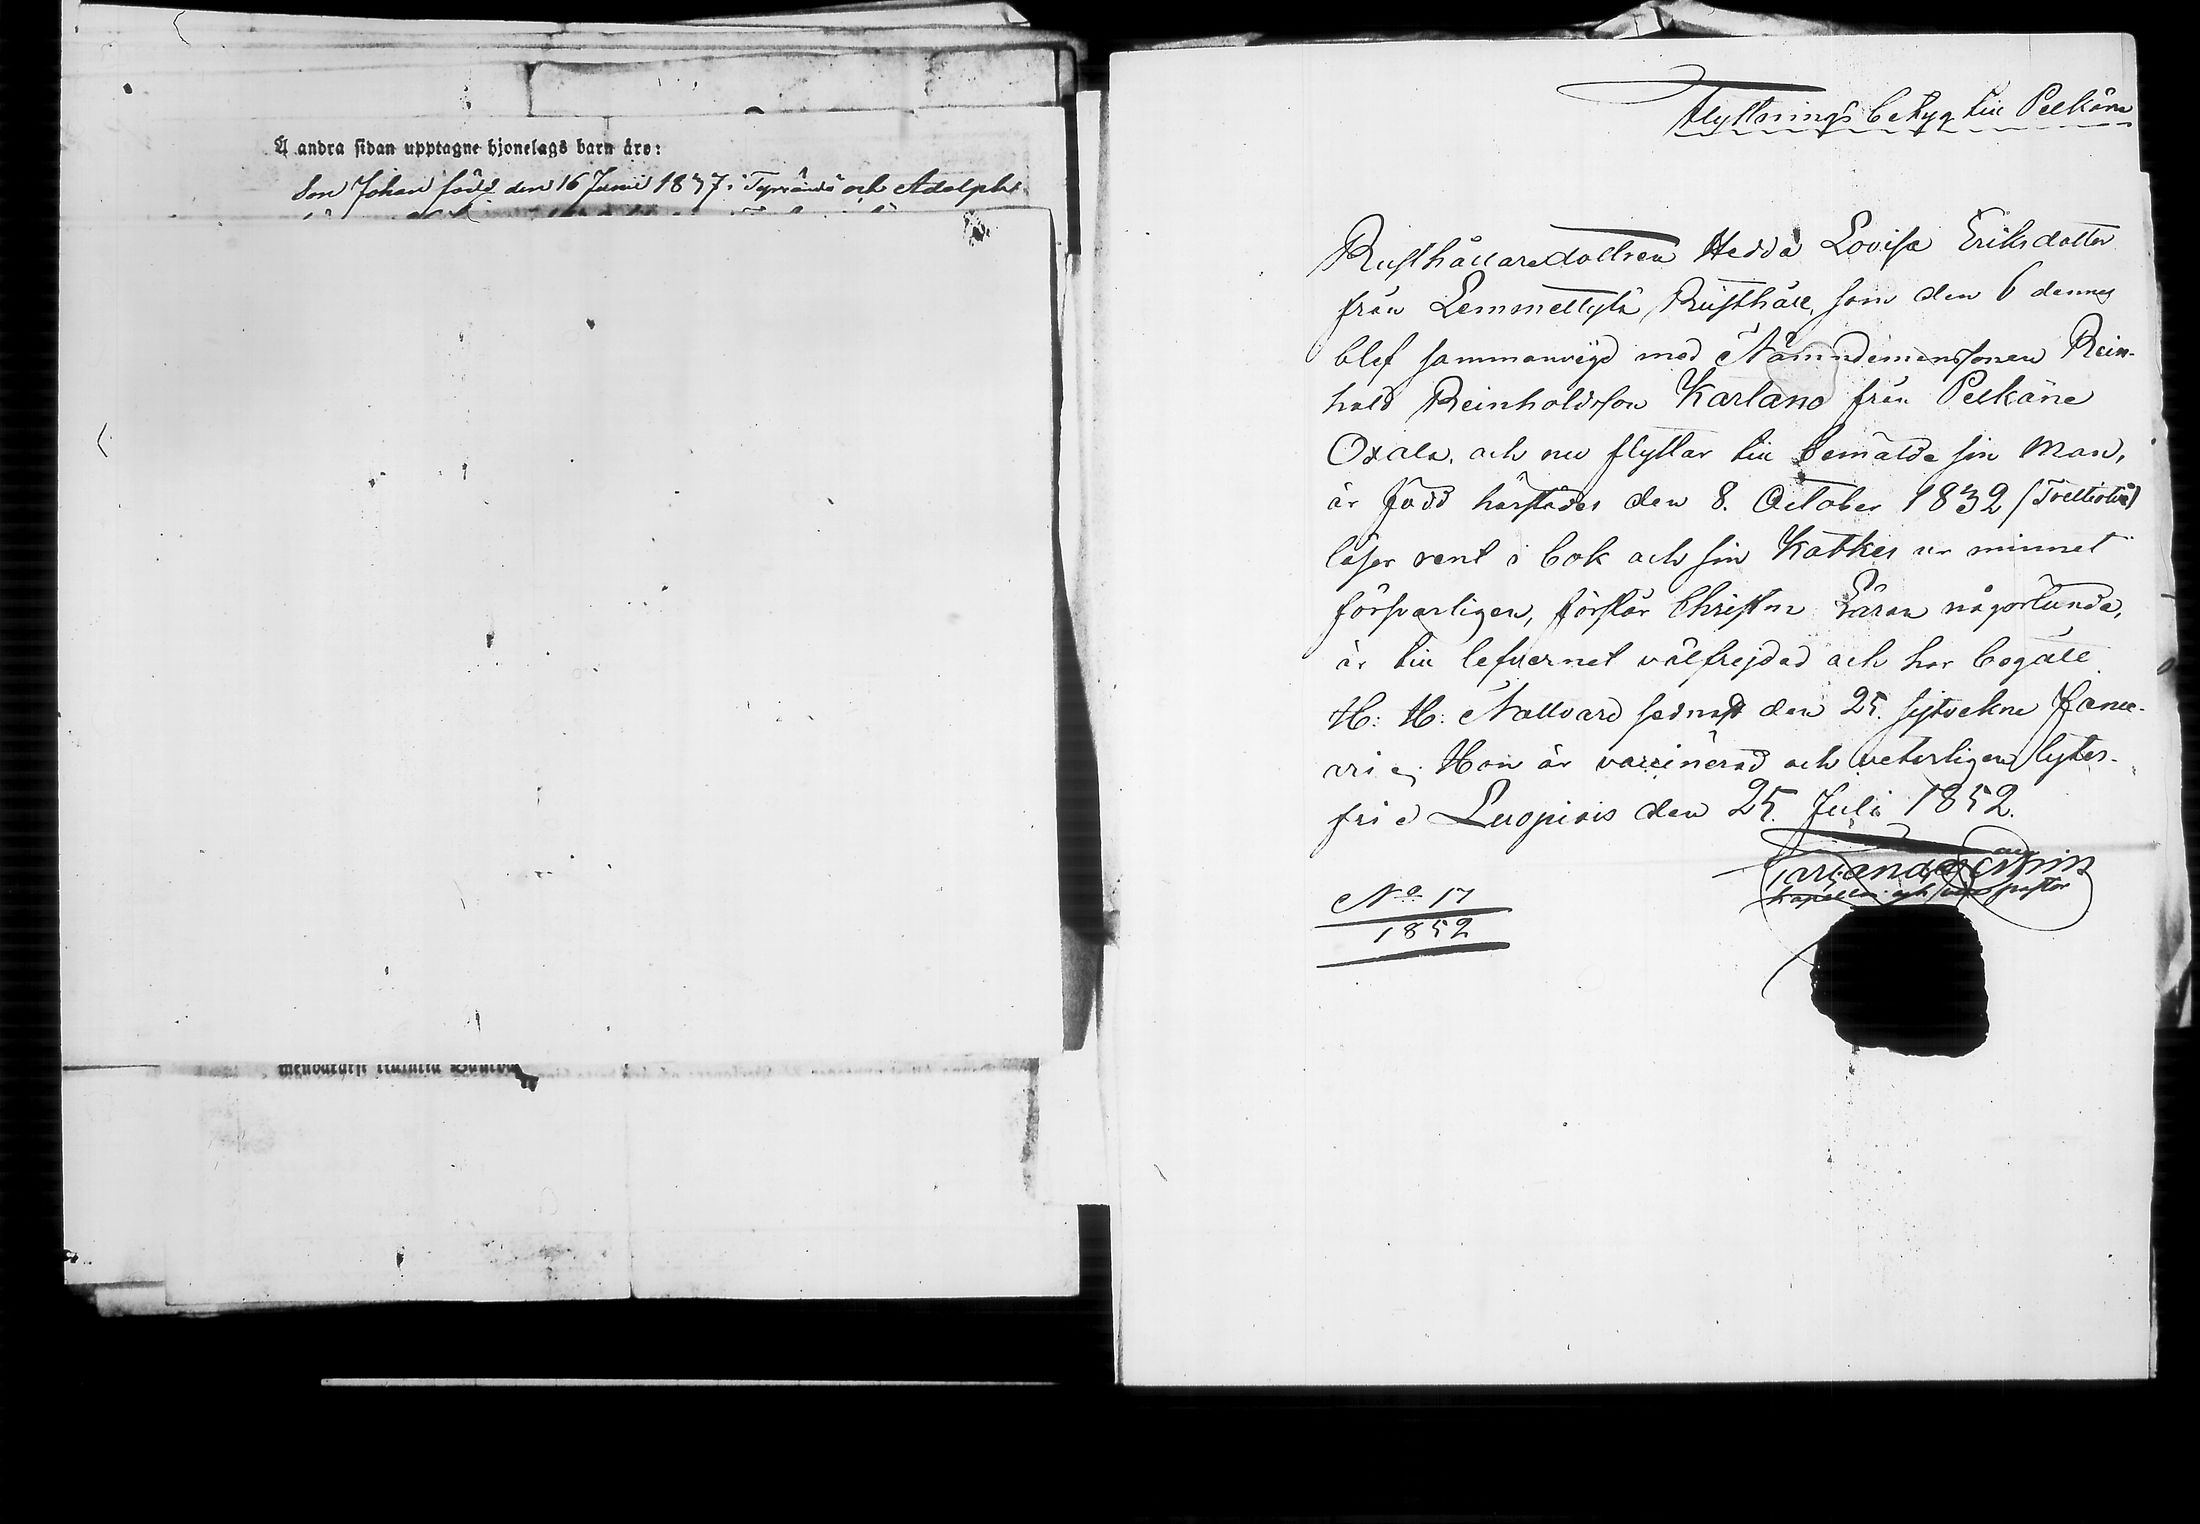 Å andra sidan upptagne hjonelags barn äro:
Son Johan född den 16 Junii 1837 i Tyrvändö och Adolph
Flyttningsbetyg till Pelkäne
Rusthållaredottren Hedda Lovisa Eriksdotter
från Lemmettylä Rusthåll, som den 6 dennes
blef sammanvigd med Nämndemanssonen Rein-
hold Reinholdsson Karlano från Pelkäne
Oxala, och nu flyttar till bemälde sin Man,
är född härstädes den 8. October 1832 (Trettiotvå)
läser rent i bok och sin Katkes ur minnet
försvarligen, förstår Christna Läran någorlunda,
är till lefvernet välfrejdad och har begått
H: H: Nattvard sednast den 25. sistvekne Janu-
arie. Hon är vaccinerad och veterligen lytes-
fri. Luopiois den 25. Juli 1852.
Kapellan och pastor
No 17
1852